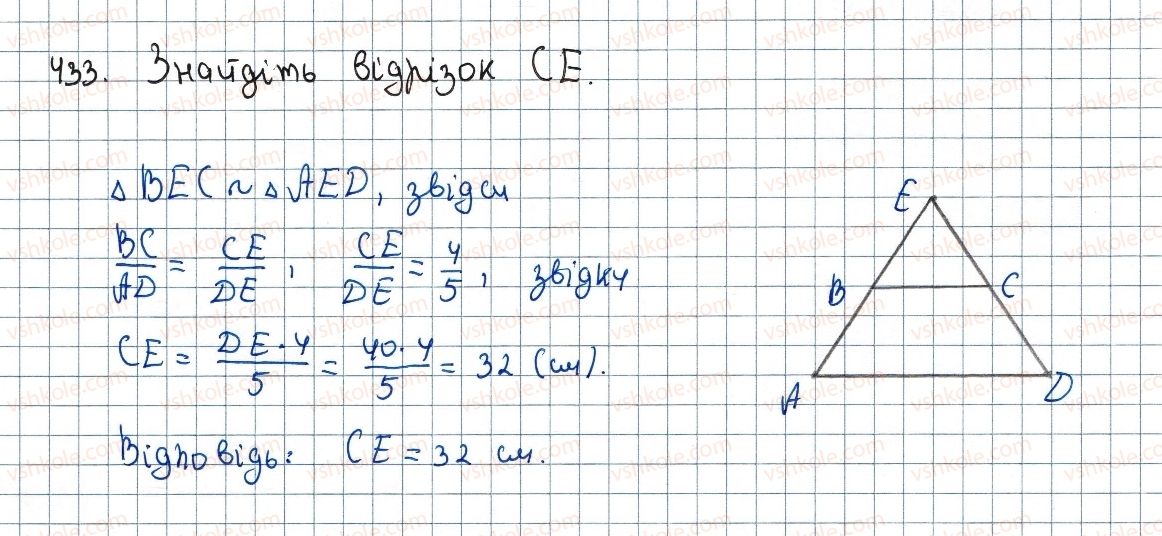 433. Знайдіть відрізок CE.
△BEC ~ △AED, звідси
BC/AD = CE/DE, CE/DE = 4/5, звідки
CE = DE·4/5 = 40·4/5 = 32 (см).
Відповідь: CE = 32 см.
E
B C
A D
vshkole.com